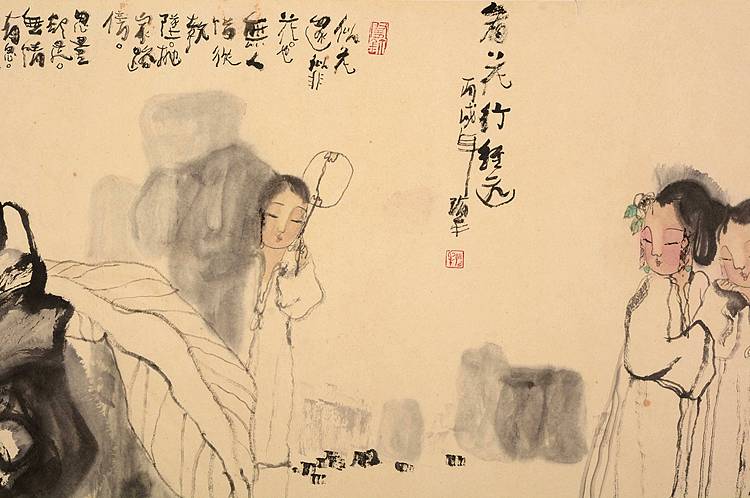 看花行經远
丙戌年
似花
還似非
花。也
無人
惜從
教
墜。拋
家路
傍。
思量
卻是。
無情
有思。